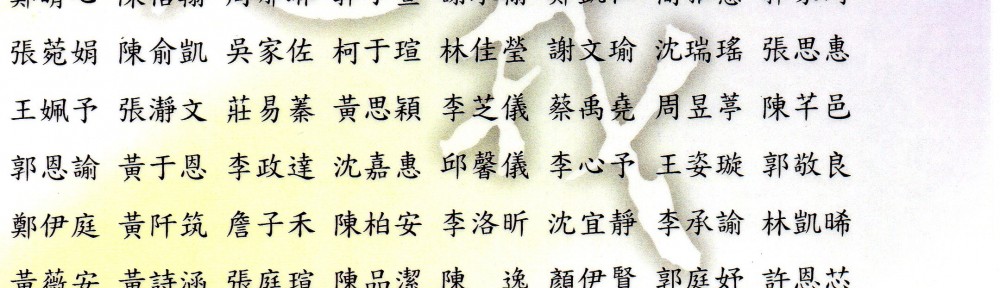 張菀娟 陳俞凱 吳家佐 柯于瑄 林佳瑩 謝文瑜 沈瑞瑤 張思惠
王姵予 張瀞文 莊易蓁 黃思穎 李芝儀 蔡禹堯 周昱葶 陳芊邑
郭恩諭 黃于恩 李政達 沈嘉惠 邱馨儀 李心予 王姿璇 郭敬良
鄭伊庭 黃阡筑 詹子禾 陳柏安 李洛昕 沈宜靜 李承諭 林凱晞
黃薇安 黃詩涵 張庭瑄 陳品潔 陳　逸 顏伊賢 郭庭妤 許恩芯